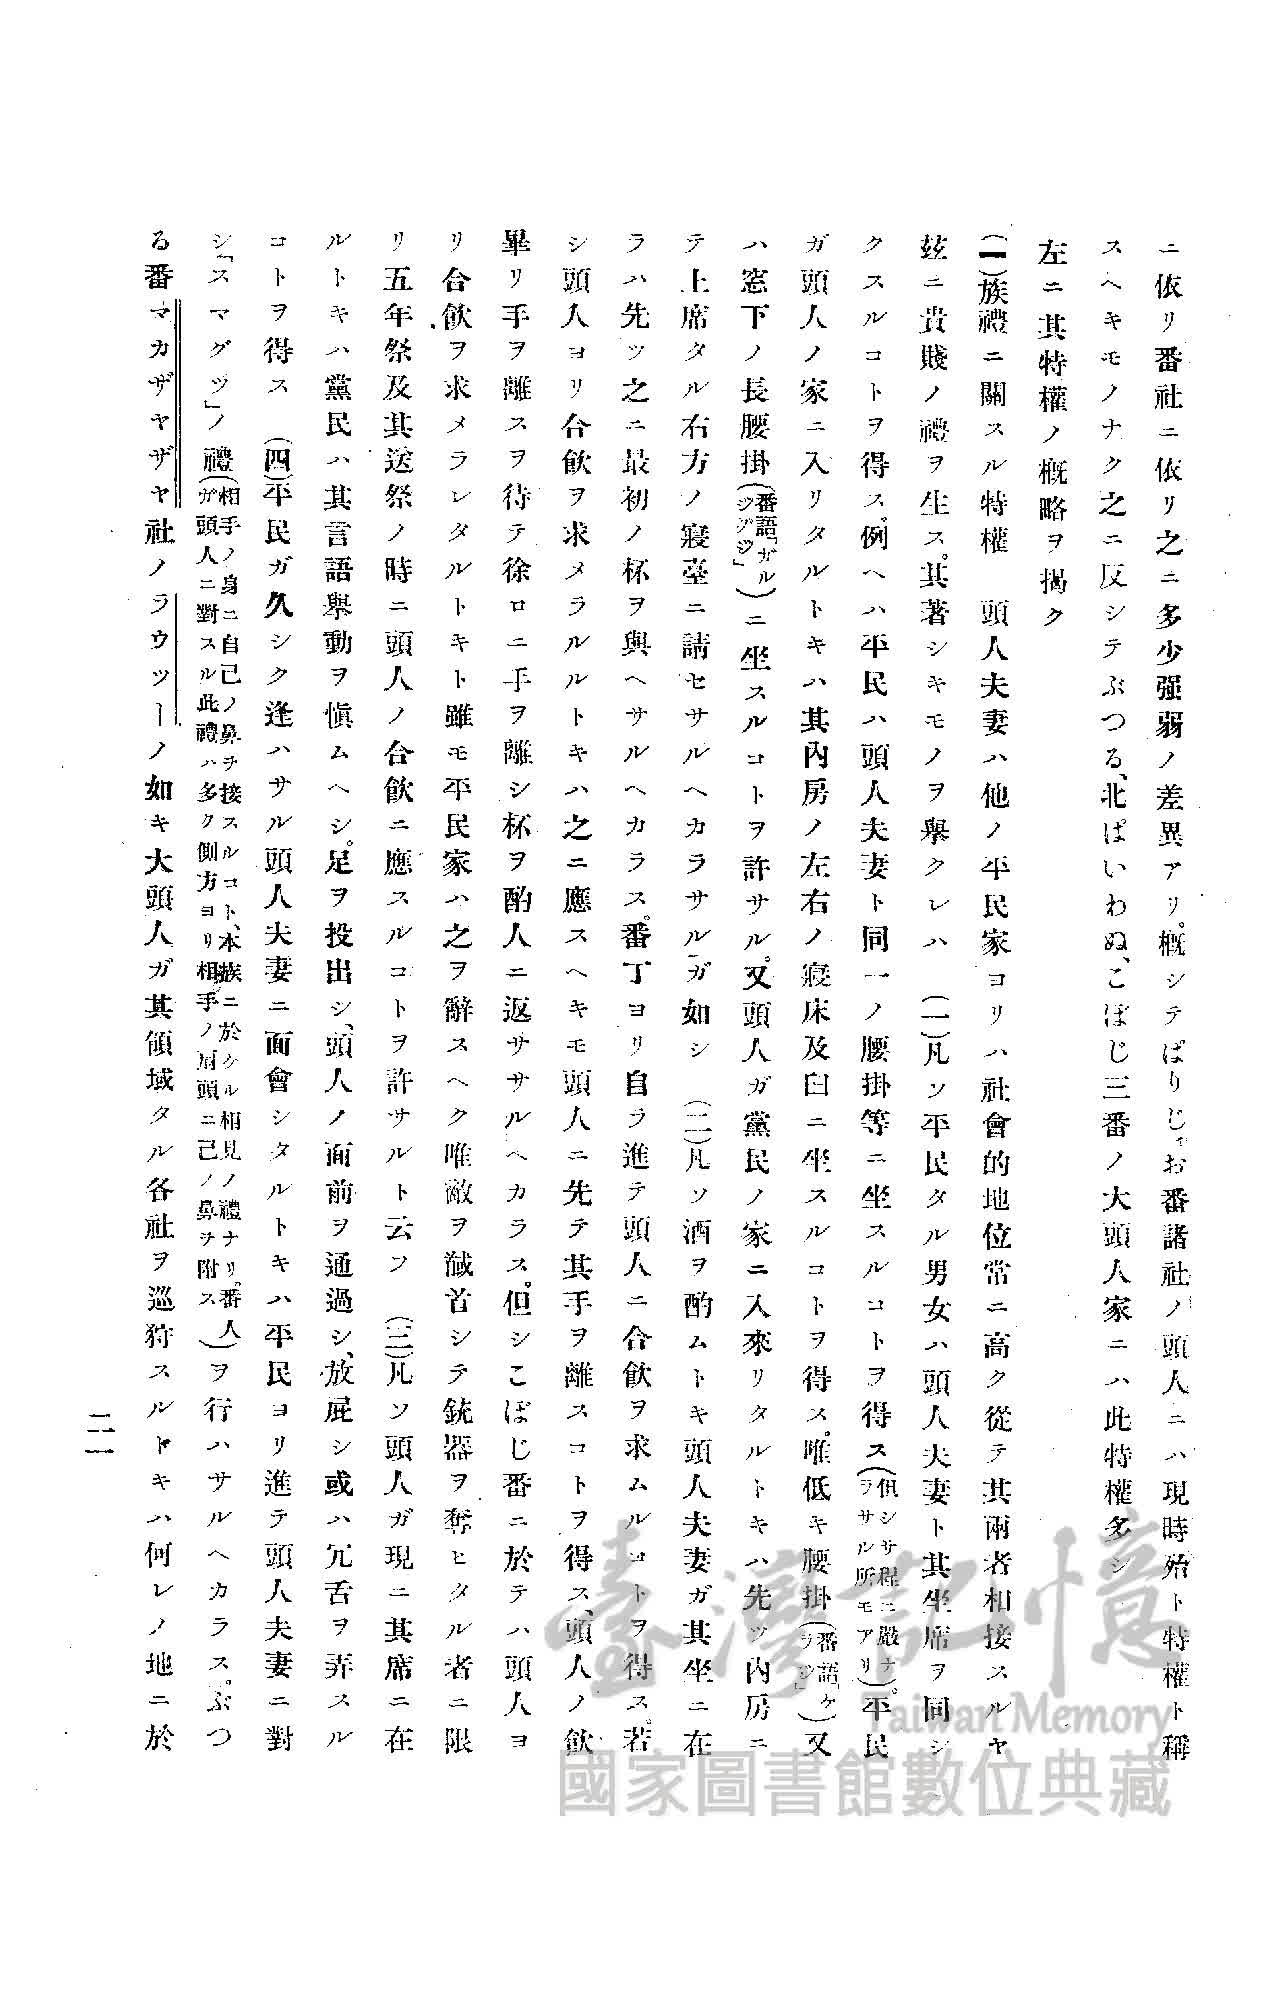 ニ依リ番社ニ依リ之ニ多少强弱ノ差異アリ。槪シテぱりじゃお番諸社ノ頭人ニハ現時殆ト特權ト稱
スヘキモノナク之ニ反シテぶつる、北ぱいわぬ、こぼじ三番ノ大頭人家ニハ此特權多シ
左ニ其特權ノ槪略ヲ揭ク
(一)族禮ニ關スル特權　頭人夫妻ハ他ノ平民家ヨリハ社會的地位常ニ高ク從テ其兩者相接スルヤ
玆ニ貴賤ノ禮ヲ生ス。其著シキモノヲ擧クレハ　(一)凡ソ平民タル男女ハ頭人夫妻ト其坐席ヲ同シ
クスルコトヲ得ス。例ヘハ平民ハ頭人夫妻ト同一ノ腰掛等ニ坐スルコトヲ得ス(但シサ程ニ嚴ナラサル所モアリ)。平民
ガ頭人ノ家ニ入リタルトキハ其內房ノ左右ノ寢床及臼ニ坐スルコトヲ得ス。唯低キ腰掛(番語「ケラジ」)又
ハ窓下ノ長腰掛(番語「ガルジグジ」)ニ坐スルコトヲ許サル。又頭人ガ黨民ノ家ニ入來リタルトキハ先ツ內房ニ
テ上席タル右方ノ寢臺ニ請セサルヘカラサルガ如シ　(二)凡ソ酒ヲ酌ムトキ頭人夫妻ガ其坐ニ在
ラハ先ツ之ニ最初ノ杯ヲ與ヘサルヘカラス。番丁ヨリ自ラ進テ頭人ニ合飮ヲ求ムルコトヲ得ス。若
シ頭人ヨリ合飮ヲ求メラルルトキハ之ニ應スヘキモ頭人ニ先テ其手ヲ離スコトヲ得ス、頭人ノ飮
畢リ手ヲ離スヲ待テ徐ロニ手ヲ離シ杯ヲ酌人ニ返ササルヘカラス。但シこぼじ番ニ於テハ頭人ヨ
リ合飮ヲ求メラレタルトキト雖モ平民家ハ之ヲ辭スヘク唯敵ヲ馘首シテ銃器ヲ奪ヒタル者ニ限
リ五年祭及其送祭ノ時ニ頭人ノ合飮ニ應スルコトヲ許サルト云フ　(三)凡ソ頭人ガ現ニ其席ニ在
ルトキハ黨民ハ其言語擧動ヲ愼ムヘシ。足ヲ投出シ、頭人ノ面前ヲ通過シ、放屁シ或ハ冗舌ヲ弄スル
コトヲ得ス　(四)平民ガ久シク逢ハサル頭人夫妻ニ面會シタルトキハ平民ヨリ進テ頭人夫妻ニ對
シ「スマグツ」ノ禮(相手ノ身ニ自己ノ鼻ヲ接スルコト、本族ニ於ケル相見ノ禮ナリ。番人ガ頭人ニ對スル此禮ハ多ク側方ヨリ相手ノ肩頭ニ己ノ鼻ヲ附ス)ヲ行ハサルヘカラス。ぶつ
る番マカザヤザヤ社ノラウツーノ如キ大頭人ガ其領域タル各社ヲ巡狩スルトキハ何レノ地ニ於
二一
臺灣記憶
Taiwan Memory
國家圖書館數位典藏